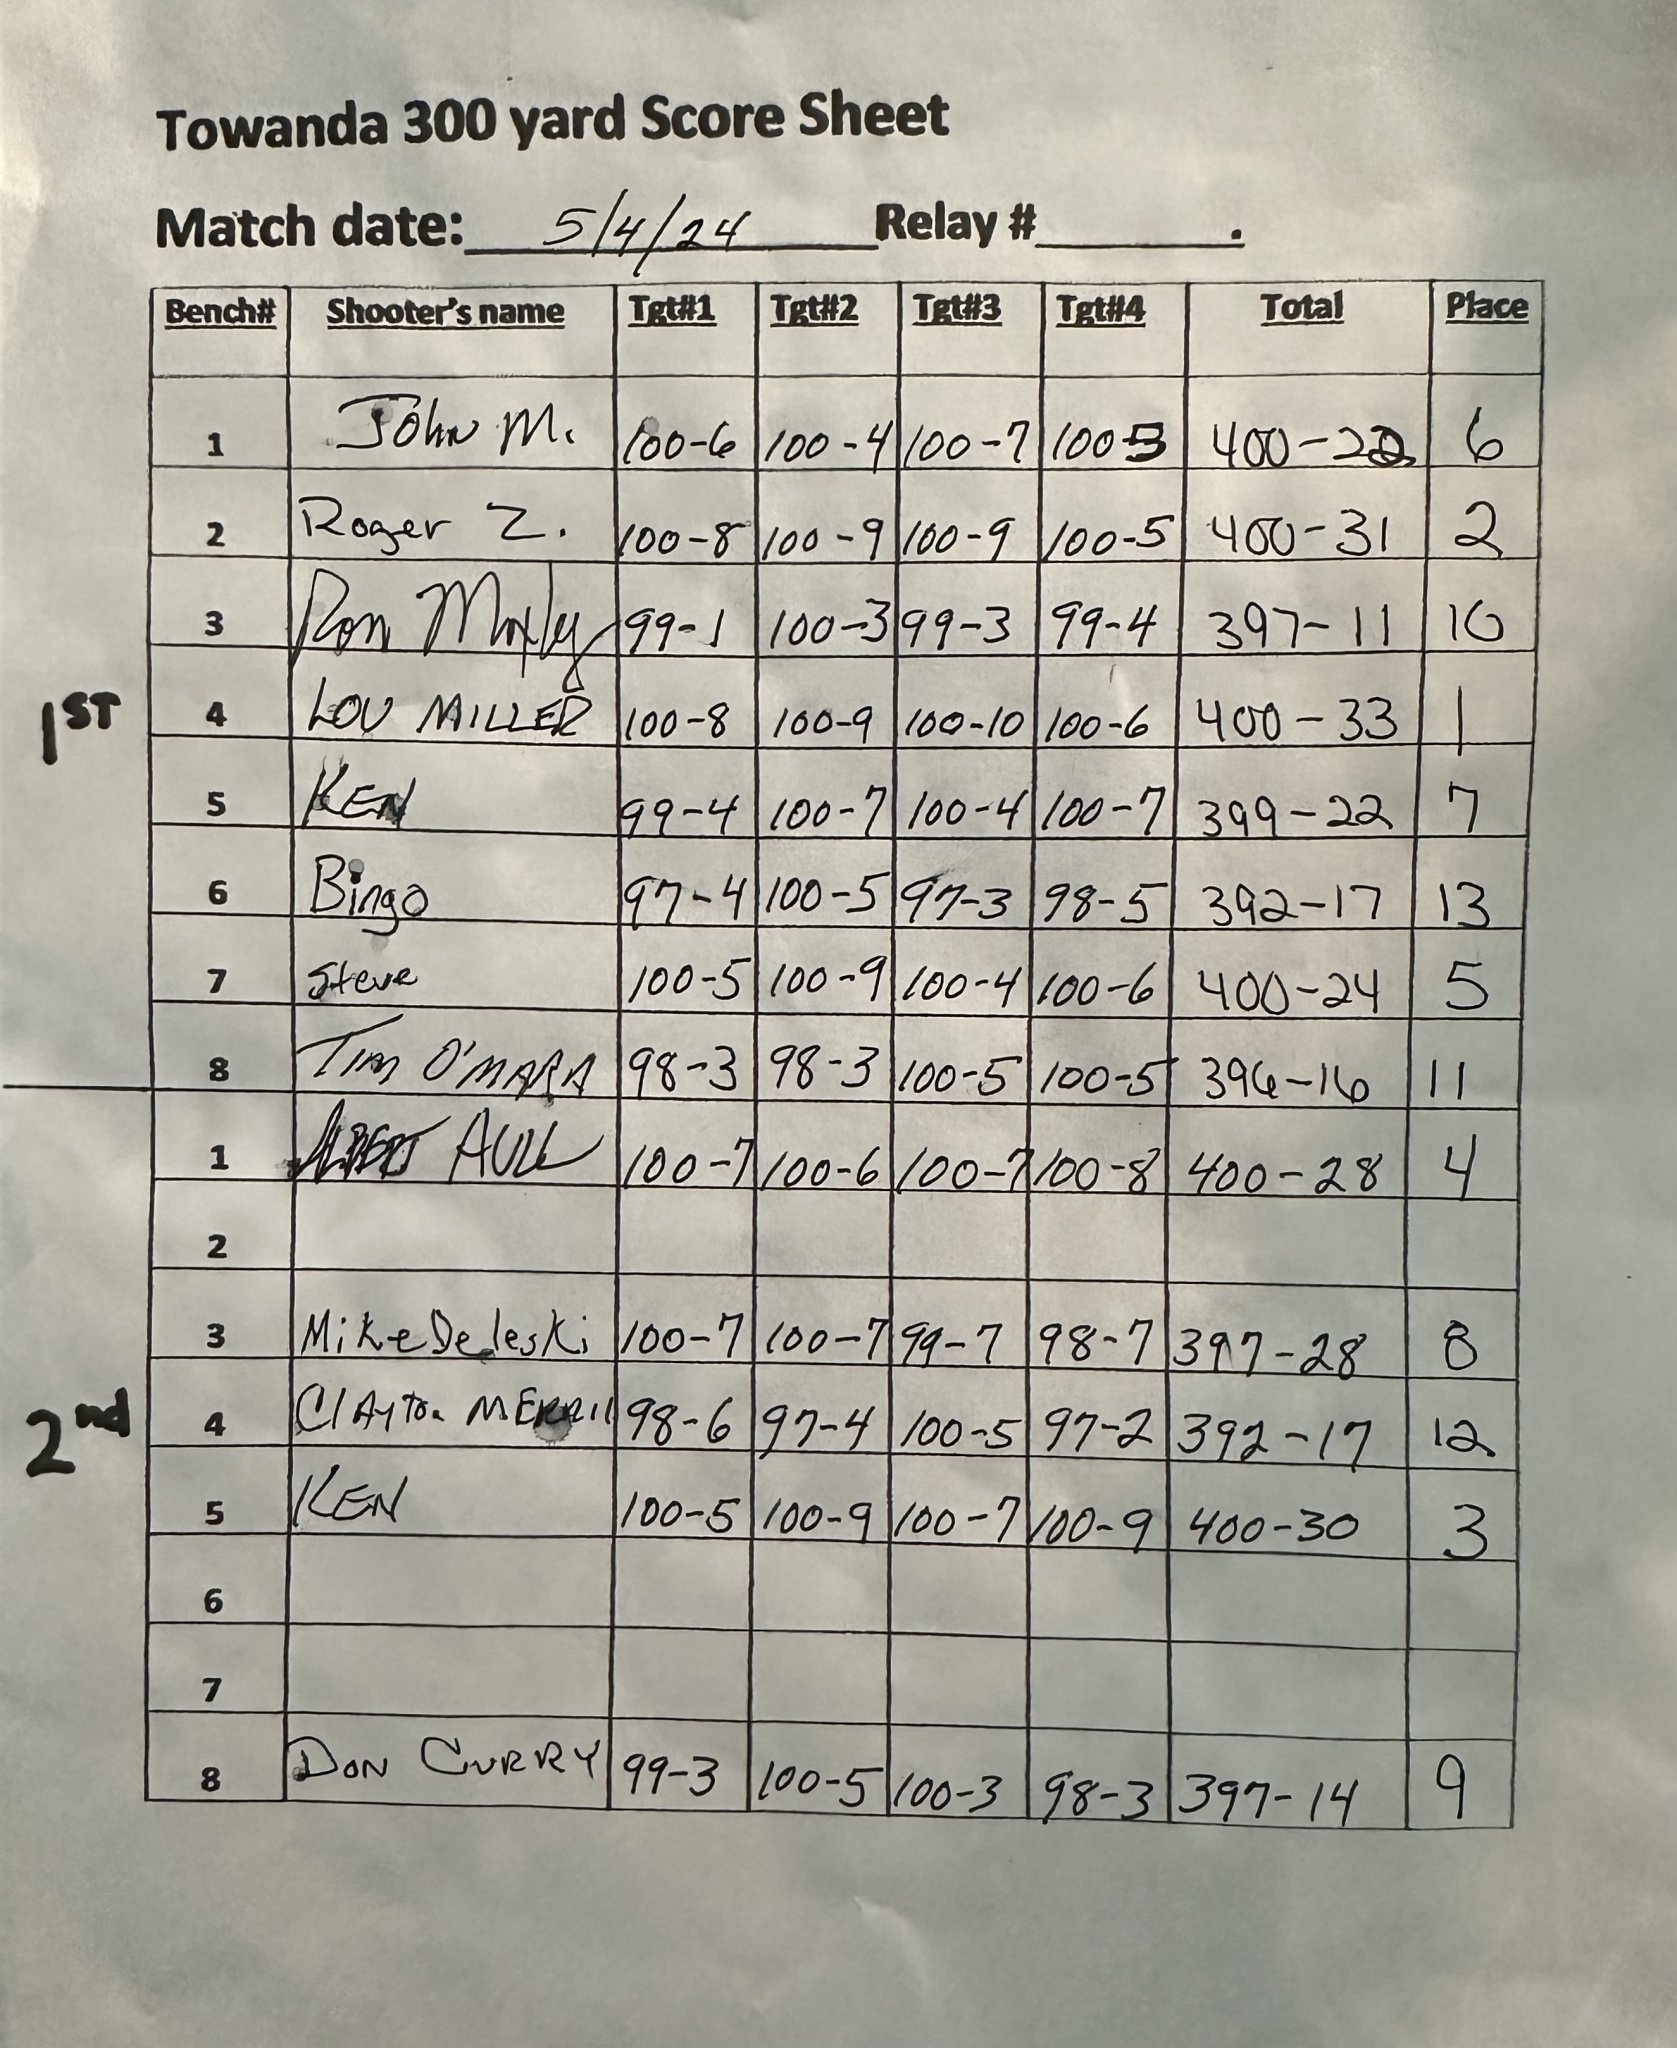 Towanda 300 yard Score Sheet
Match date: 5/4/24 Relay # .
Bench# Shooter's name Tgt#1 Tgt#2 Tgt#3 Tgt#4 Total Place
1 John M. 100-6 100-4 100-7 100 5 400-22 6
2 Roger Z. 100-8 100-9 100-9 100-5 400-31 2
3 Ron Moxly 99-1 100-3 99-3 99-4 397-11 10
1ST 4 LOU MILLER 100-8 100-9 100-10 100-6 400-33 1
5 KEN 99-4 100-7 100-4 100-7 399-22 7
6 Bingo 97-4 100-5 97-3 98-5 392-17 13
7 Steve 100-5 100-9 100-4 100-6 400-24 5
8 TIM O'MARA 98-3 98-3 100-5 100-5 396-16 11
1 ALBERT AULL 100-7 100-6 100-7 100-8 400-28 4
2
3 Mike Deleski 100-7 100-7 99-7 98-7 397-28 8
2nd 4 Clayton MERRill 98-6 97-4 100-5 97-2 392-17 12
5 KEN 100-5 100-9 100-7 100-9 400-30 3
6
7
8 DON CURRY 99-3 100-5 100-3 98-3 397-14 9